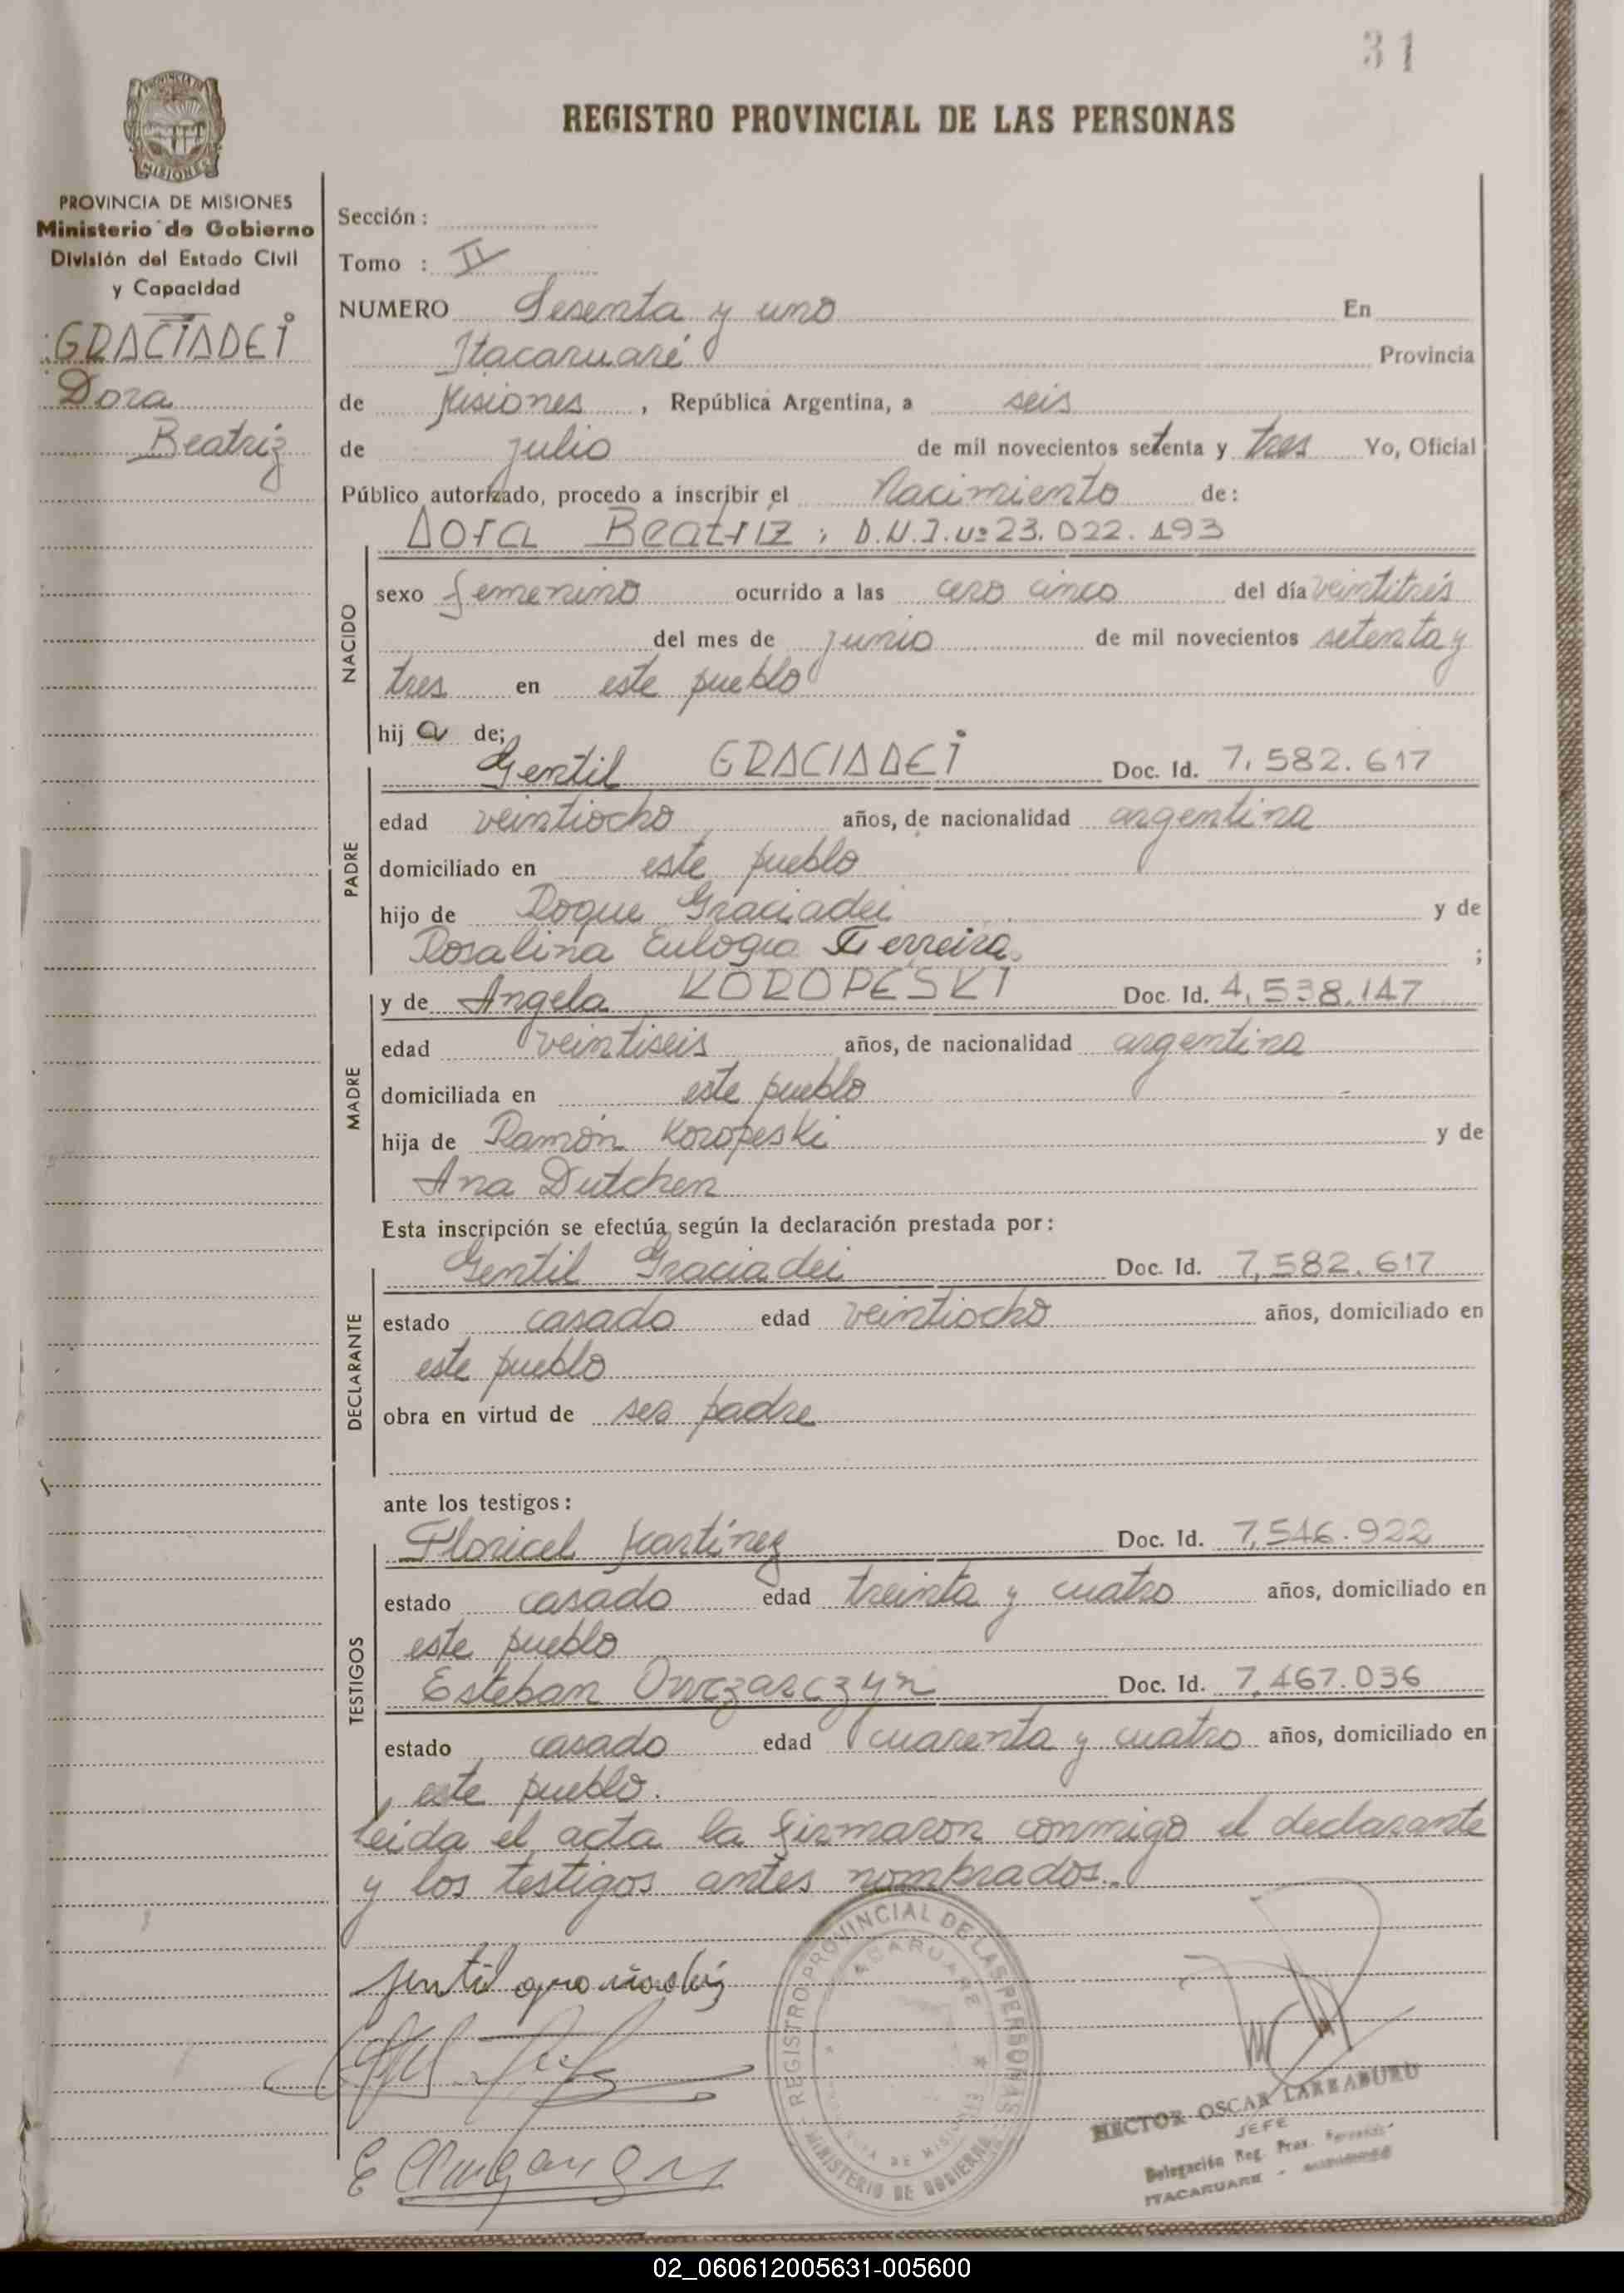 31
REGISTRO PROVINCIAL DE LAS PERSONAS
PROVINCIA DE MISIONES
Ministerio de Gobierno
División del Estado Civil
y Capacidad
GRACIADEI
Dora
Beatriz
Sección :
Tomo : II
NUMERO Sesenta y uno En
Itacaruaré Provincia
de Misiones , República Argentina, a seis
de julio de mil novecientos setenta y tres Yo, Oficial
Público autorizado, procedo a inscribir el Nacimiento de:
NACIDO
Dora Beatriz ; D.N.I. Nº 23.022.193
sexo femenino ocurrido a las cero cinco del día veintitrés
del mes de junio de mil novecientos setenta y
tres en este pueblo
hij a de;
PADRE
Gentil GRACIADEI Doc. Id. 7.582.617
edad veintiocho años, de nacionalidad argentina
domiciliado en este pueblo
hijo de Roque Graciadei y de
Rosalina Eulogia Ferreira ;
MADRE
y de Angela KOROPESKI Doc. Id. 4.538.147
edad veintiseis años, de nacionalidad argentina
domiciliada en este pueblo
hija de Ramón Koropeski y de
Ana Dutchen
Esta inscripción se efectúa según la declaración prestada por :
DECLARANTE
Gentil Graciadei Doc. Id. 7.582.617
estado casado edad veintiocho años, domiciliado en
este pueblo
obra en virtud de ser padre
ante los testigos :
TESTIGOS
Floricel Martínez Doc. Id. 7.546.922
estado casado edad treinta y cuatro años, domiciliado en
este pueblo
Esteban Owczarczyn Doc. Id. 7.467.036
estado casado edad cuarenta y cuatro años, domiciliado en
este pueblo.
leida el acta la firmaron conmigo el declarante
y los testigos antes nombrados.
REGISTRO PROVINCIAL DE LAS PERSONAS
ITACARUARE
MINISTERIO DE GOBIERNO
HECTOR OSCAR LARRABURU
JEFE
Delegación Reg. Prov. Personas
ITACARUARE - MISIONES
02_060612005631-005600